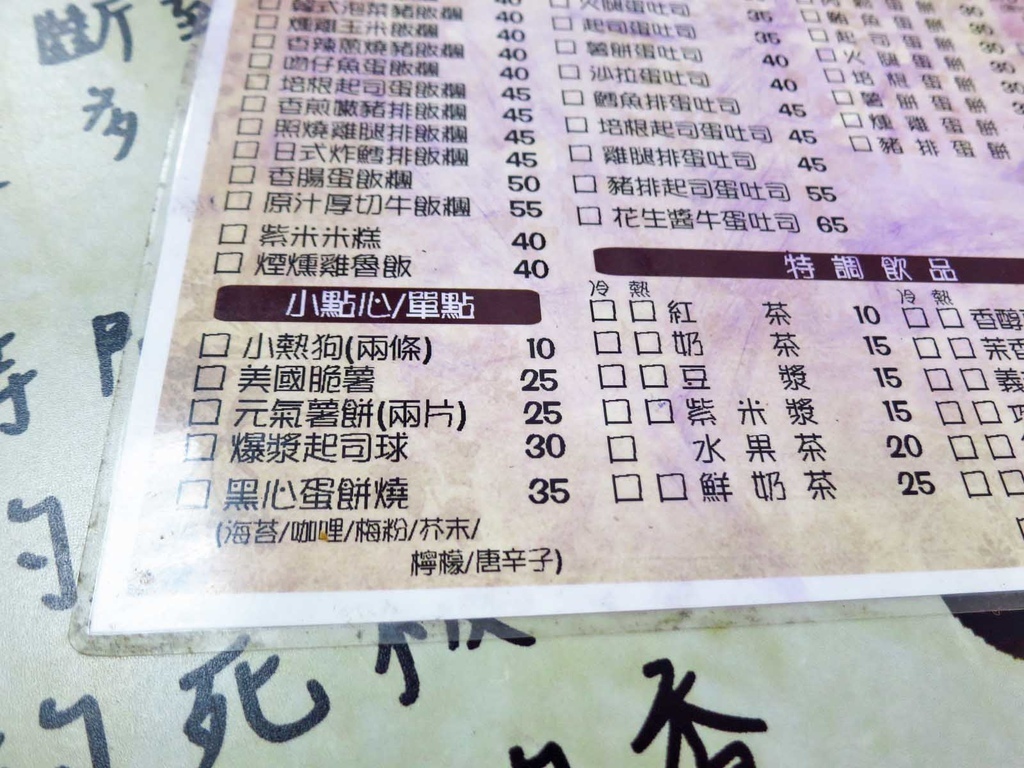 韓式泡菜豬飯糰 40
燻雞玉米飯糰 40
香辣蔥燒豬飯糰 40
吻仔魚蛋飯糰 40
培根起司蛋飯糰 45
香煎嫩豬排飯糰 45
照燒雞腿排飯糰 45
日式炸鱈排飯糰 45
香腸蛋飯糰 50
原汁厚切牛飯糰 55
紫米米糕 40
煙燻雞魯飯 40
小點心/單點
小熱狗(兩條) 10
美國脆薯 25
元氣薯餅(兩片) 25
爆漿起司球 30
黑心蛋餅燒 35
(海苔/咖哩/梅粉/芥末/
檸檬/唐辛子)
火腿蛋吐司 35
起司蛋吐司 35
薯餅蛋吐司 40
沙拉蛋吐司 40
鱈魚排蛋吐司 45
培根起司蛋吐司 45
雞腿排蛋吐司 45
豬排起司蛋吐司 55
花生醬牛蛋吐司 65
鮪魚蛋餅 30
起司蛋餅 30
火腿蛋餅 30
培根蛋餅
薯餅蛋餅
燻雞蛋餅
豬排蛋餅
特調飲品
冷 熱
紅茶 10
奶茶 15
豆漿 15
紫米漿 15
水果茶 20
鮮奶茶 25
冷 熱
香醇
茉香
義
斷
多
的
死
香